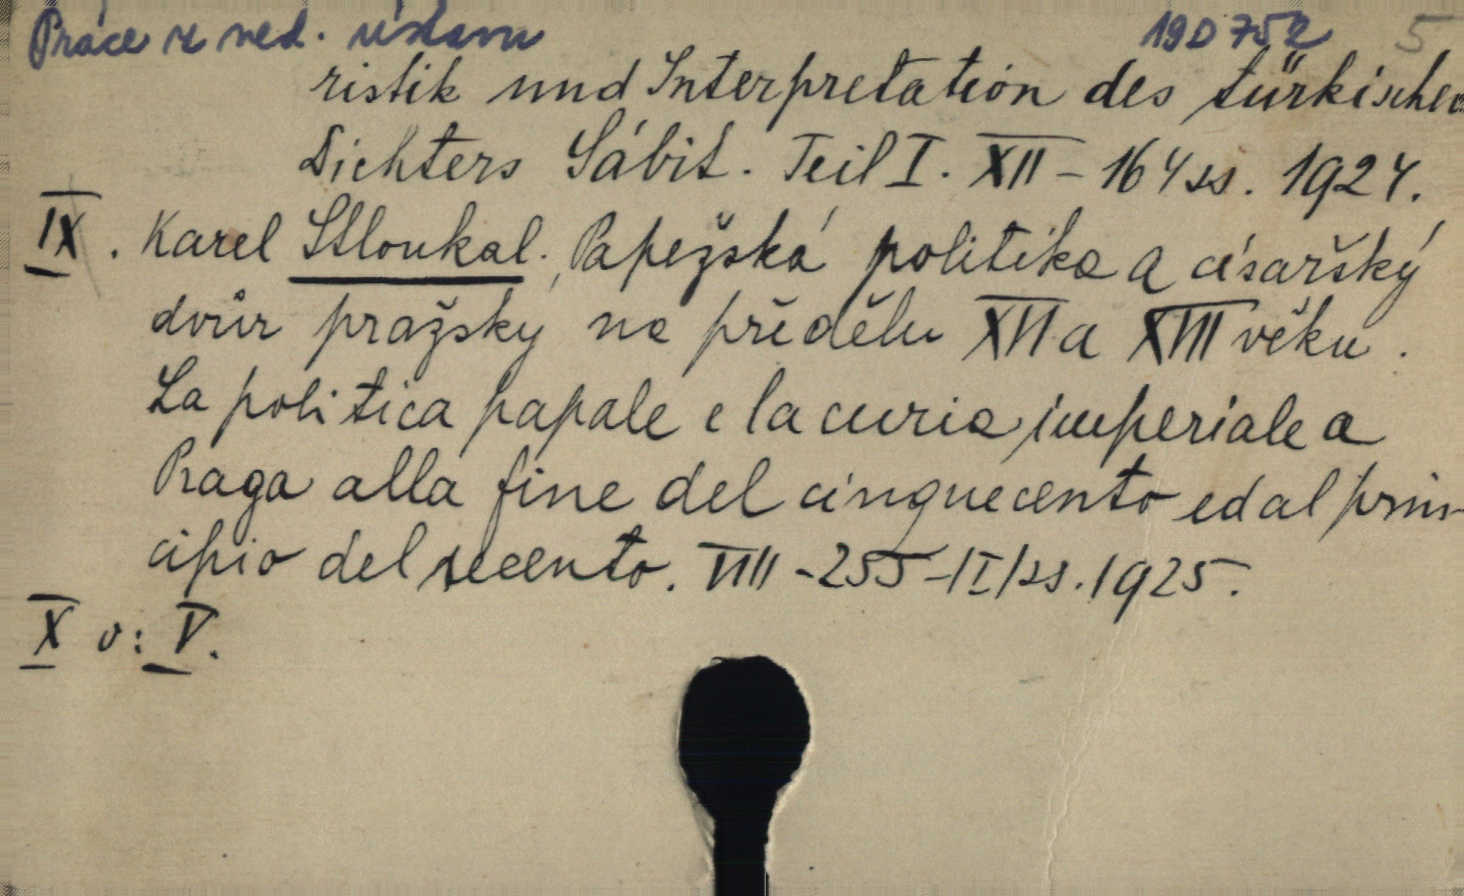 Práce z ved. ústavu 19D752 5
ristik und Interpretation des türkischen
Dichters Sábit. Teil I. XII - 164 ss. 1924.
IX. Karel Stloukal. Papežská politika a císařský
dvůr pražsky na předělu XVI a XVII věku.
La politica papale e la curia imperiale a
Praga alla fine del cinquecento ed al prin-
cipio del secento. VIII - 255 - /I/ ss. 1925.
X v: V.